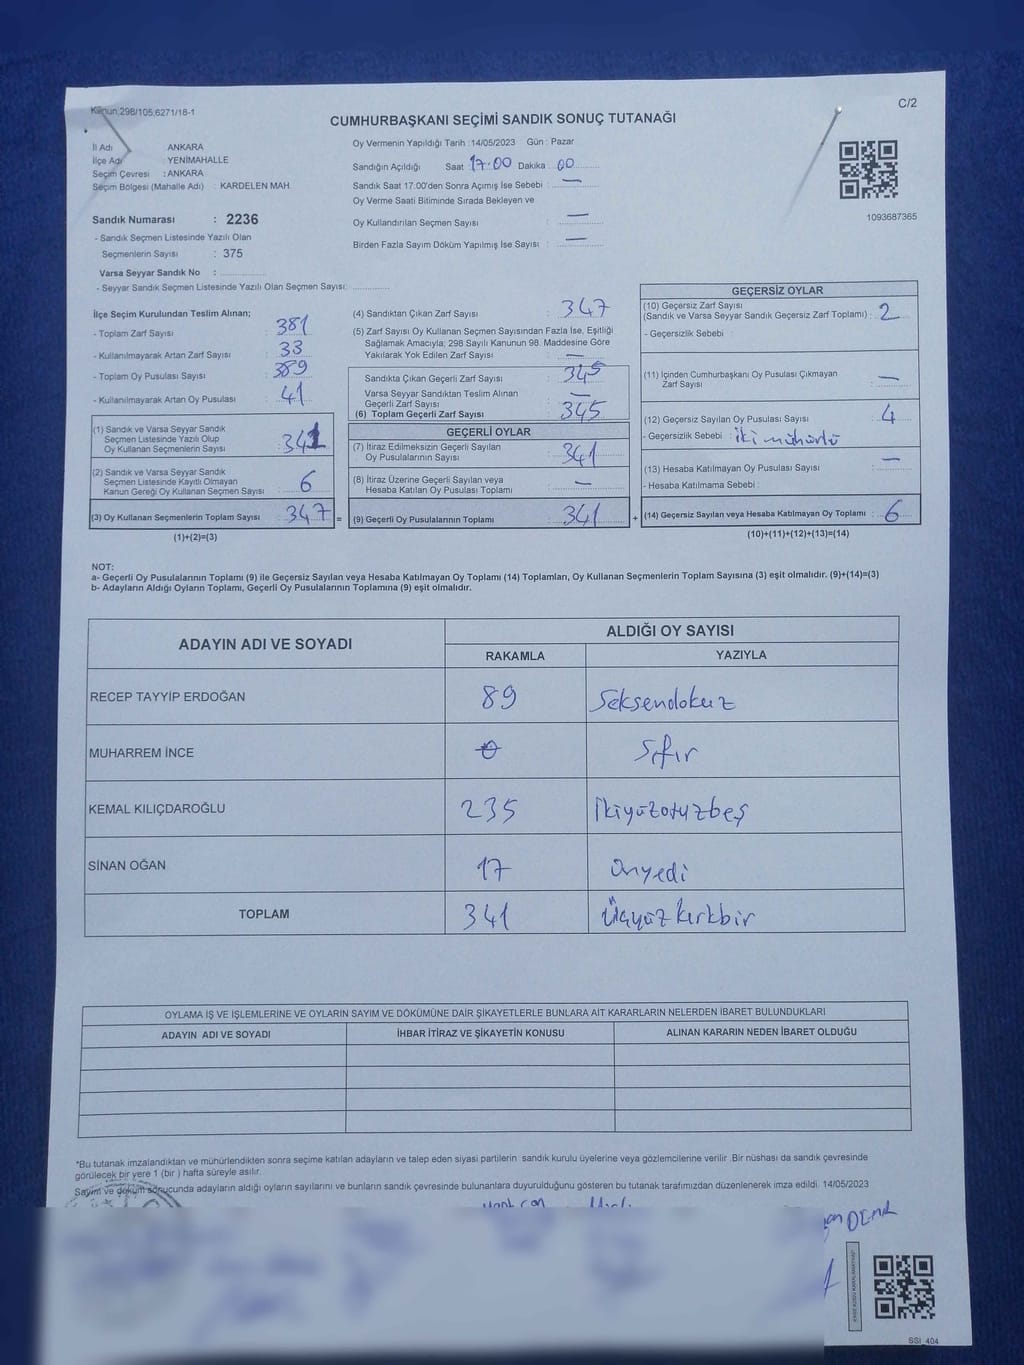 Kanun:298/105,6271/18-1
C/2
CUMHURBAŞKANI SEÇİMİ SANDIK SONUÇ TUTANAĞI
İl Adı ANKARA
İlçe Adı YENİMAHALLE
Seçim Çevresi : ANKARA
Seçim Bölgesi (Mahalle Adı) : KARDELEN MAH.
Sandık Numarası : 2236
- Sandık Seçmen Listesinde Yazılı Olan
Seçmenlerin Sayısı : 375
Varsa Seyyar Sandık No :
- Seyyar Sandık Seçmen Listesinde Yazılı Olan Seçmen Sayısı:
Oy Vermenin Yapıldığı Tarih :14/05/2023 Gün : Pazar
Sandığın Açıldığı Saat 17.00 Dakika : 00
Sandık Saat 17.00'den Sonra Açımış İse Sebebi : —
Oy Verme Saati Bitiminde Sırada Bekleyen ve
Oy Kullandırılan Seçmen Sayısı : —
Birden Fazla Sayım Döküm Yapılmış İse Sayısı : —
1093687365
İlçe Seçim Kurulundan Teslim Alınan;
- Toplam Zarf Sayısı : 381
- Kullanılmayarak Artan Zarf Sayısı : 33
- Toplam Oy Pusulası Sayısı : 389
- Kullanılmayarak Artan Oy Pusulası : 41
(1) Sandık ve Varsa Seyyar Sandık
Seçmen Listesinde Yazılı Olup
Oy Kullanan Seçmenlerin Sayısı : 341
(2) Sandık ve Varsa Seyyar Sandık
Seçmen Listesinde Kayıtlı Olmayan
Kanun Gereği Oy Kullanan Seçmen Sayısı : 6
(3) Oy Kullanan Seçmenlerin Toplam Sayısı : 347 =
(1)+(2)=(3)
(4) Sandıktan Çıkan Zarf Sayısı : 347
(5) Zarf Sayısı Oy Kullanan Seçmen Sayısından Fazla İse, Eşitliği
Sağlamak Amacıyla; 298 Sayılı Kanunun 98. Maddesine Göre
Yakılarak Yok Edilen Zarf Sayısı : —
Sandıkta Çıkan Geçerli Zarf Sayısı : 345
Varsa Seyyar Sandıktan Teslim Alınan
Geçerli Zarf Sayısı : —
(6) Toplam Geçerli Zarf Sayısı : 345
GEÇERLİ OYLAR
(7) İtiraz Edilmeksizin Geçerli Sayılan
Oy Pusulalarının Sayısı : 341
(8) İtiraz Üzerine Geçerli Sayılan veya
Hesaba Katılan Oy Pusulası Toplamı : —
(9) Geçerli Oy Pusulalarının Toplamı : 341 +
GEÇERSİZ OYLAR
(10) Geçersiz Zarf Sayısı
(Sandık ve Varsa Seyyar Sandık Geçersiz Zarf Toplamı) : 2
- Geçersizlik Sebebi :
(11) İçinden Cumhurbaşkanı Oy Pusulası Çıkmayan
Zarf Sayısı : —
(12) Geçersiz Sayılan Oy Pusulası Sayısı : 4
- Geçersizlik Sebebi : iki mühürlü
(13) Hesaba Katılmayan Oy Pusulası Sayısı : —
- Hesaba Katılmama Sebebi :
(14) Geçersiz Sayılan veya Hesaba Katılmayan Oy Toplamı : 6
(10)+(11)+(12)+(13)=(14)
NOT:
a- Geçerli Oy Pusulalarının Toplamı (9) ile Geçersiz Sayılan veya Hesaba Katılmayan Oy Toplamı (14) Toplamları, Oy Kullanan Seçmenlerin Toplam Sayısına (3) eşit olmalıdır. (9)+(14)=(3)
b- Adayların Aldığı Oyların Toplamı, Geçerli Oy Pusulalarının Toplamına (9) eşit olmalıdır.
ADAYIN ADI VE SOYADI ALDIĞI OY SAYISI
RAKAMLA YAZIYLA
RECEP TAYYİP ERDOĞAN 89 Seksendokuz
MUHARREM İNCE 0 Sıfır
KEMAL KILIÇDAROĞLU 235 İkiyüzotuzbeş
SİNAN OĞAN 17 Onyedi
TOPLAM 341 Üçyüzkırkbir
OYLAMA İŞ VE İŞLEMLERİNE VE OYLARIN SAYIM VE DÖKÜMÜNE DAİR ŞİKAYETLERLE BUNLARA AİT KARARLARIN NELERDEN İBARET BULUNDUKLARI
ADAYIN ADI VE SOYADI İHBAR İTİRAZ VE ŞİKAYETİN KONUSU ALINAN KARARIN NEDEN İBARET OLDUĞU
*Bu tutanak imzalandıktan ve mühürlendikten sonra seçime katılan adayların ve talep eden siyasi partilerin sandık kurulu üyelerine veya gözlemcilerine verilir .Bir nüshası da sandık çevresinde
görülecek bir yere 1 (bir ) hafta süreyle asılır.
Sayım ve döküm sonucunda adayların aldığı oyların sayılarını ve bunların sandık çevresinde bulunanlara duyurulduğunu gösteren bu tutanak tarafımızdan düzenlenerek imza edildi. 14/05/2023
SSI_404